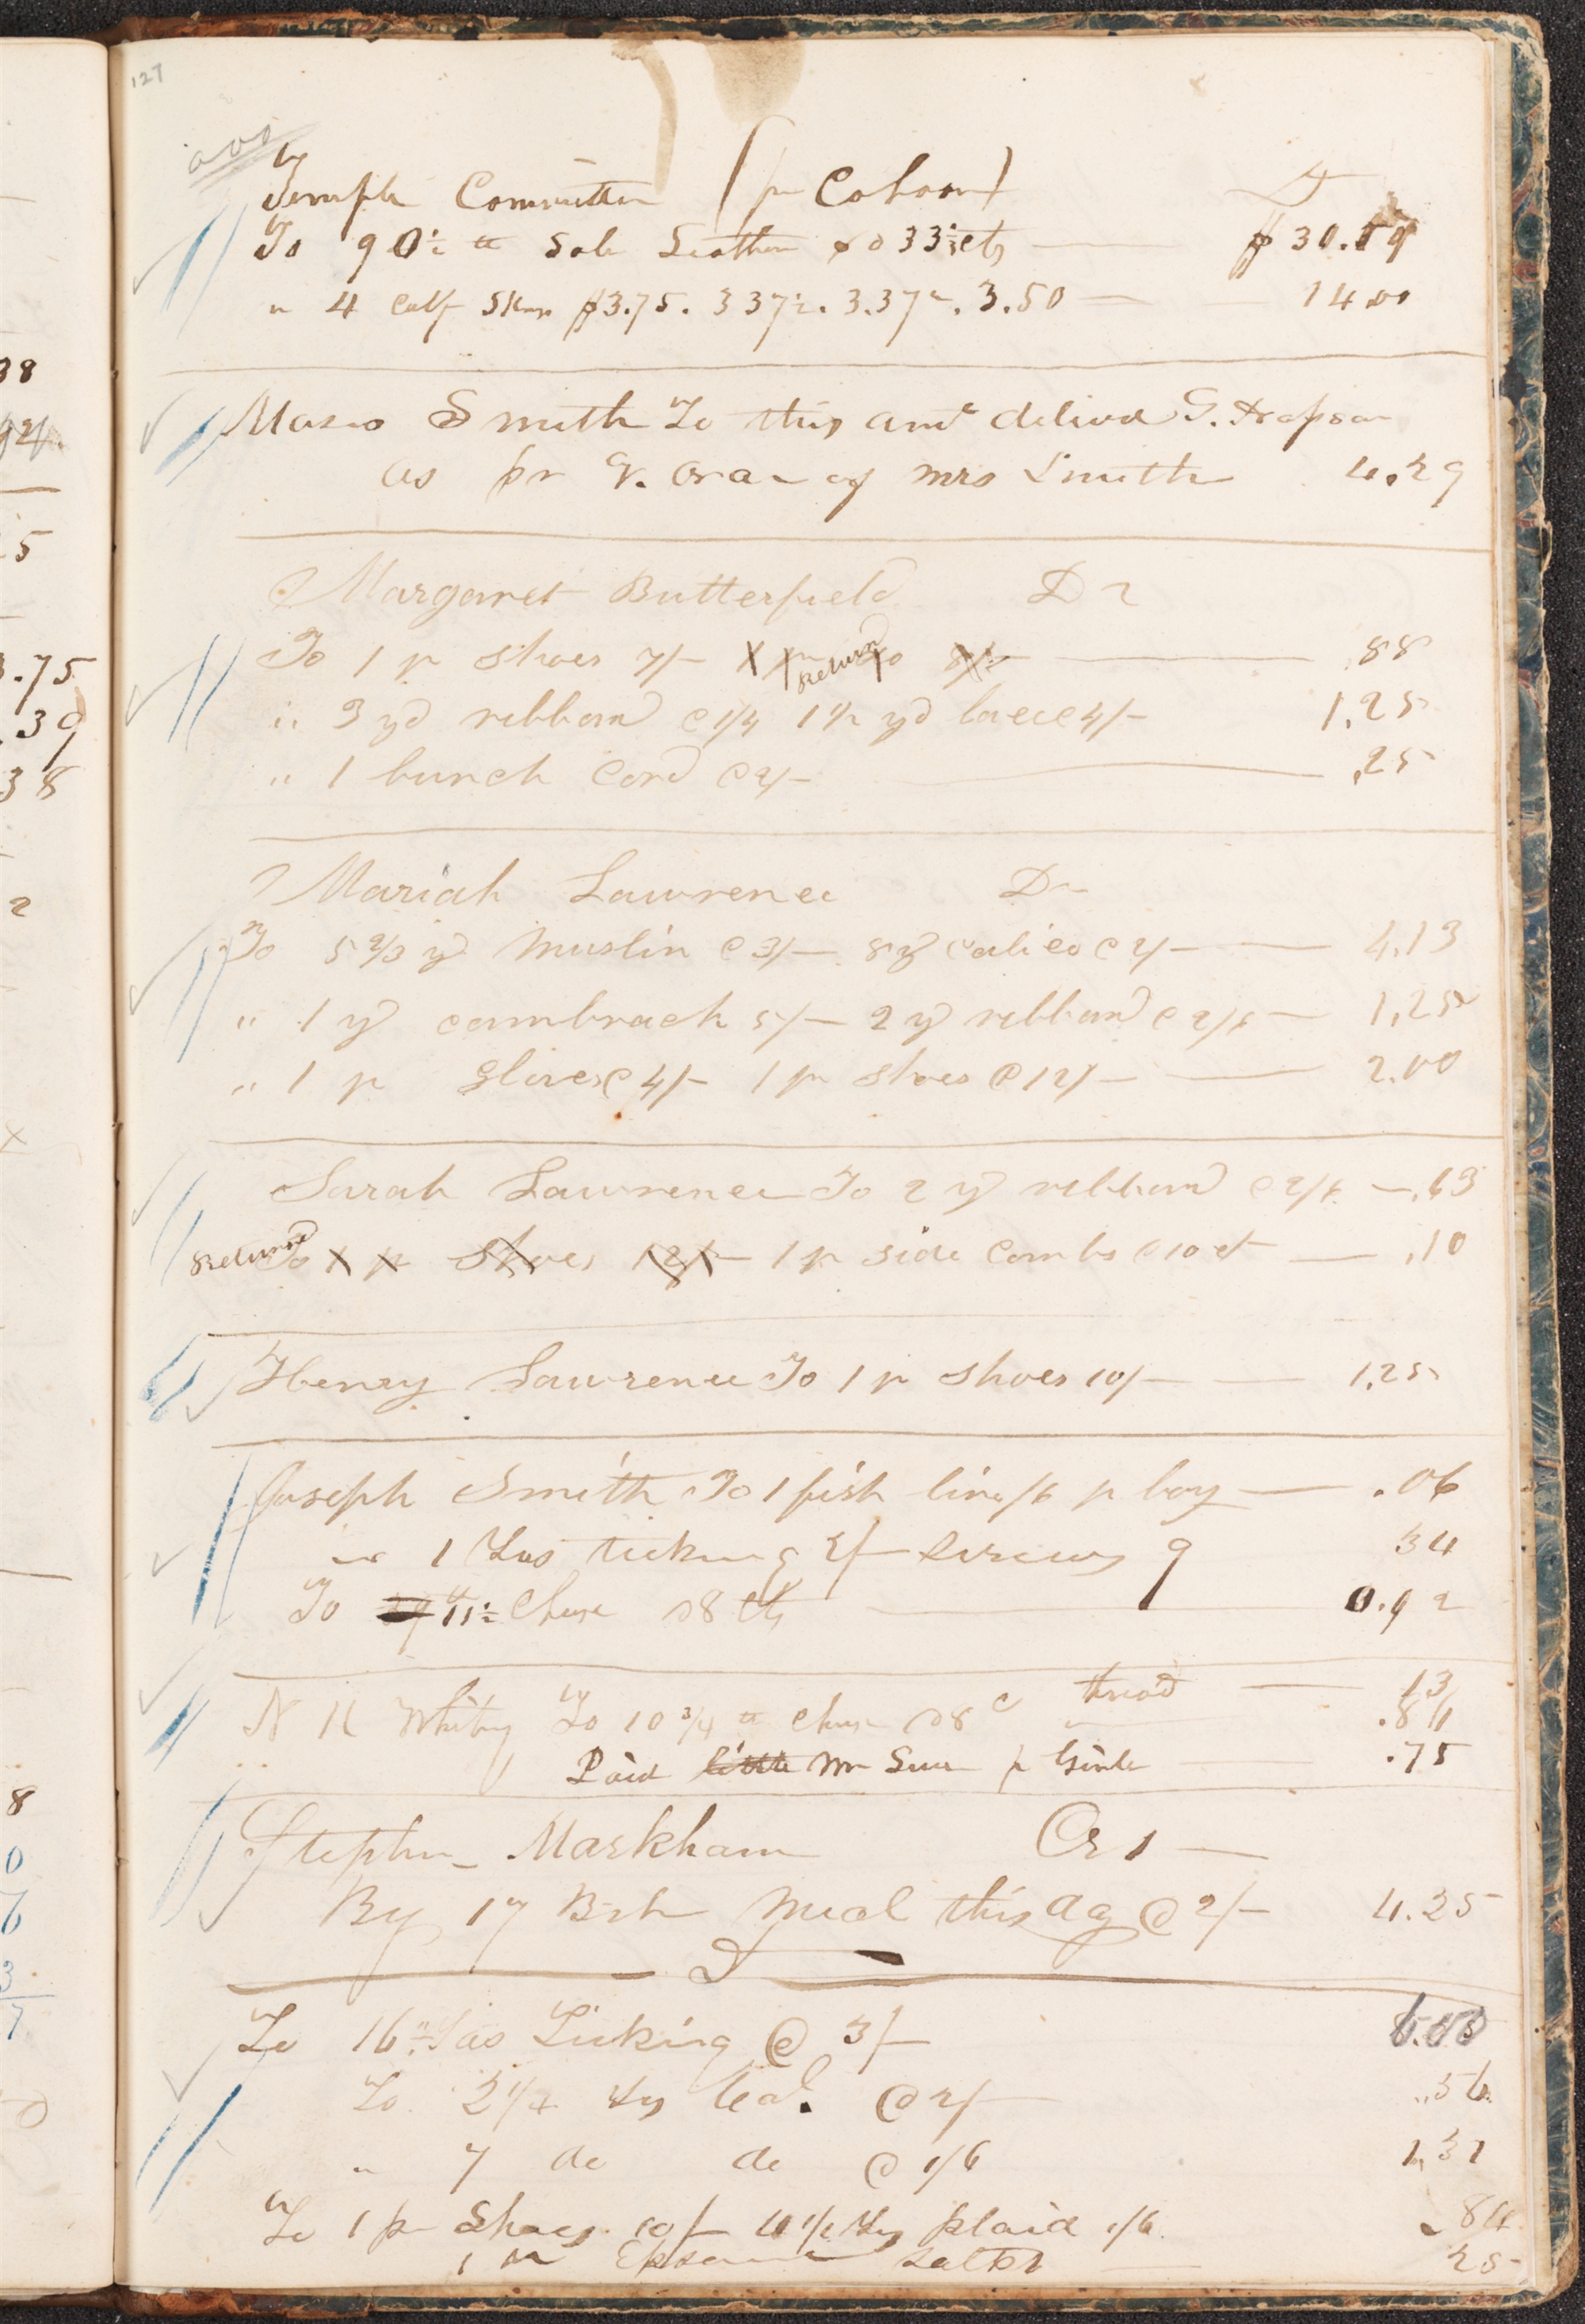 127
Temple Committee (pr Cahoon)
To 90½ lb Sole Leather 33⅓ cts $30.19
" 4 Calf Skins $3.75. 3 37½. 3.37½. 3.50 14.00
Smith To this amt delivd G.
as pr of Mrs Smith 4.29
Margaret Butterfield Dr
To 1 pr shoes 7/– Returnd .88
" 3 yd ribband @ 1/4 1½ yd lace @ 4/– 1.25
" 1 bunch cord @ 2/– .25
Mariah Lawrence Dr
To 5 2/3 yd Muslin @ 3/– 8 yd calico @ 2/– 4.13
" 1 yd cambrack 5/– 2 yd ribband @ 2/6 1.25
" 1 pr gloves @ 4/– 1 pr shoes @ 12/– 2.00
Sarah Lawrence To 2 yd ribband @ 2/6 .63
Returnd To 1 pr shoes 12/– 1 pr side combs @ 10 ct .10
Henry Lawrence To 1 pr shoes 10/– 1.25
Joseph Smith To 1 fish line /6 pr boy .06
" 1 Yds ticking 2/– screws 9 34
To 11½ Cheese 8 cts 0.92
thread 13
N K Whitny To 10 3/4 lb cheese 8 c .86
Paid little Mr pr .75
Stephen Markham Cr
By 17 Bsh Meal this day @ 2/– 4.25
To 16 Yds Ticking @ 3/– 6.00
To 2 1/4 Yds Cal. @ 2/– .56
" 7 do do @ 1/6 1.31
To 1 pr Shoes 10/– 4½ Yds plaid 1/6 .84
1 Epsom salts 25